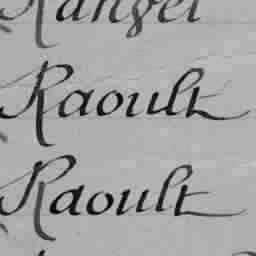 Ranvel
Raoult
Raoult